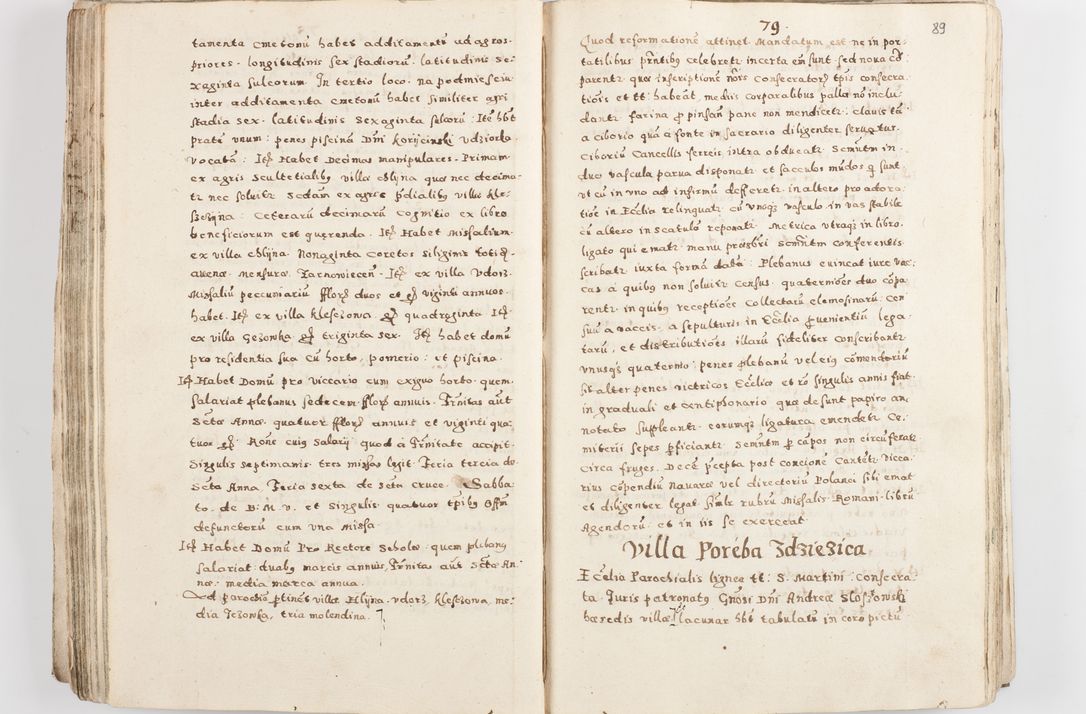 tamenta cmetonū habet additamentū ad agros
priores. longitudinis sex stadiorū. latitudinis se-
xaginta sulcorum. In tertio loco. na podmiesciu
inter additamenta cmetonū habet similiter agri
stadia sex. latitudinis sexaginta sulcorū: Itē hbt
pratū unum: penes piscinā Dni Korijcinski vdziorka
vocatā: Itē Habet Decimas manipulares. Primam
ex agris Scultetialibȝ villæ Chlijna quæ nec decima-
tr nec solvitr Secdam ex agris pdialibȝ villæ Kle-
szczijna: Ceterarū decimarū cognitio ex libro
beneficiorum est querenda. Itē Habet Missalium
ex villa Chlijna Nonaginta coretos siliginis totidē
avenæ. mensuræ Zarnowiecen. Itē ex villa Vdorz
Missaliū peccuniariū fflorȝ duos et gȝ viginti annuos
habet. Itē ex villa Kleszczowa. gȝ quadraginta Itē
ex villa Gezowka gȝ triginta sex. Itē habet domū
pro residentia sua cū horto, pomerio: et piscina.
Itē Habet Domū pro viccario cum exiguo horto. quem
salariat plebanus sedecem fflorȝ annuis. Trinitas aūt
Sctæ Annæ. quatuor fflorȝ annuis et viginti qua
tuor gȝ. Rone cuiȝ Salarij quod a Trinitate accipit
Singulis septimanis tres missas legit. Feria tercia de
Scta Anna, Feria sexta de Sctā cruce. Sabba
to. de B: M. V. et Singulis quatuor tpibȝ Offm
defunctorū cum una Missa.
Itē Habet Domū Pro Rectore Scholæ quem plebanȝ
salariat duabȝ marcis annuis, Trinitas aūt Sctæ An-
næ media marca annua.
Ad parochiā ptinēt villæ Hlijna. vdorz, Kleszczowa, me-
dia Jezowka, tria molendina.
79.
89
Quod reformationē attinet. Mandatum est ne in por-
tatilibus pntibȝ celebretr incerta em sunt sed nova cō-
parentr quæ inscriptionē nois Consecratorȝ tpis consecra
tiōis et tt: habeāt, mediis corporalibus palla nō inclu
dantr farina p pinsan pane non mendicetr. Clavis tā
a ciborio quā a fonte in sacrario diligenter servatur.
Ciborū Cancellis ferreis intra obducatr Scmntm in
duo vascula parva disponatr et sacculos mūdos q sunt
ut cū in uno ad infirmū defferetr. in altero pro adora-
tiōe in Ecclia relinquatr. cū unoqȝ vasculo in vas stabile
cū altero in scatulo reponatr. Metrica utraqȝ in libro
ligato qui ematr manu prosbri Scmntm conferentis
scribatr iuxta formā datā: Plebanus evincat iure vac-
cas a quibȝ non solvitr census. quaterniōes duo cōpa
rentr in quibȝ receptiōes Collectarū elemosinarū. cen
suū a vaccis, a sepulturis in Ecclia pvenientiū lega
tarū, et distributiōes illarū fideliter conscribantr
unusqȝ quaternio: penes plebanū vel eiȝ cōmendariū
sit alter penes victricos Eccliæ et rō singulis annis fiat.
in graduali et Antiphonario quæ desunt papiro an,
notato suppleantr. eorumqȝ ligatura emendetr Ce-
miterii sepes pficiantr Scmntm p cāpos non circū feratr
Circa fruges. Decē pcepta post concionē Cantētr Vicca
rius cōpendiū Navaræ vel directoriū Polanci sibi emat
et diligenter legat simlr rubrū Missalis Romani. librū
Agendorū et in iis se exerceat
Villa Poręba Zdziezica
Ecclia Parochialis lignea tt: S. Martini: consecra-
ta. Juris patronatȝ Gnosi Dni Andreæ Slosłowski
hæredis villæ. Lacunar hbt tabulatū in coro pictū